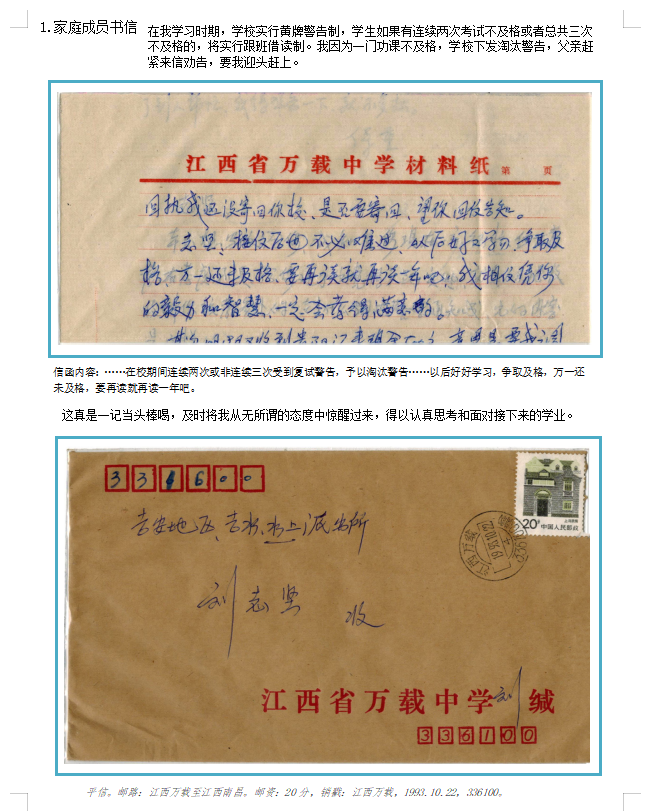 1.家庭成员书信
在我学习时期，学校实行黄牌警告制，学生如果有连续两次考试不及格或者总共三次
不及格的，将实行跟班借读制。我因为一门功课不及格，学校下发淘汰警告，父亲赶
紧来信劝告，要我迎头赶上。
江西省万载中学材料纸 第 页
回执我还没寄回你校、是否要寄回、望你回信告知。
志坚：接信后也不必难过、以后好好学习、争取及
格、万一还未及格、要再读就再读一年吧、我相信凭你
的毅力和智慧、一定会读得满意的。
信函内容：……在校期间连续两次或非连续三次受到复试警告，予以淘汰警告……以后好好学习，争取及格，万一还
未及格，要再读就再读一年吧。
这真是一记当头棒喝，及时将我从无所谓的态度中惊醒过来，得以认真思考和面对接下来的学业。
334600
吉安地区、吉水、水上派出所
刘志坚 收
20分
上海民居
中国人民邮政
江西万载
1993.10.22
江西省万载中学刘缄
336100
平信。邮路：江西万载至江西南昌。邮资：20分，销戳：江西万载，1993.10.22，336100。